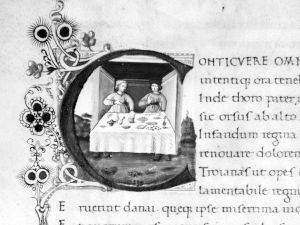 CONTICVERE OMN
intentiq; ora tene
Inde thoro pater
sic orsus ab alto
Infandum regina
renouare dolorem
Troianas ut opes
lamentabile regnu
E ruerint danai. queq; ipse miserrima ui